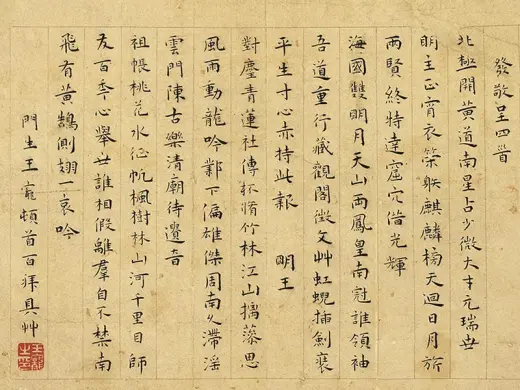 發敬呈四首
北極開黃道南星占少微大才元瑞世
明主正宵衣策麒麟天迴日月旂
兩賢終特達窟穴借光輝
海國雙明月天山兩鳳皇南冠誰領袖
吾道重行藏觀閣徵文艸虹蜺插劍
平生寸心亦持此報 明王
對麈青蓮社傳杯脩竹林江山摛藻思
風雨動龍吟鄴下偏雄傑周南久滯淫
雲門陳古樂清廟待遺音
祖帳桃花水征帆楓樹林山河千里目師
友百年心舉世誰相假離羣自不禁南
飛有黃鵠側翅一哀吟
門生王寵頓首百拜具艸